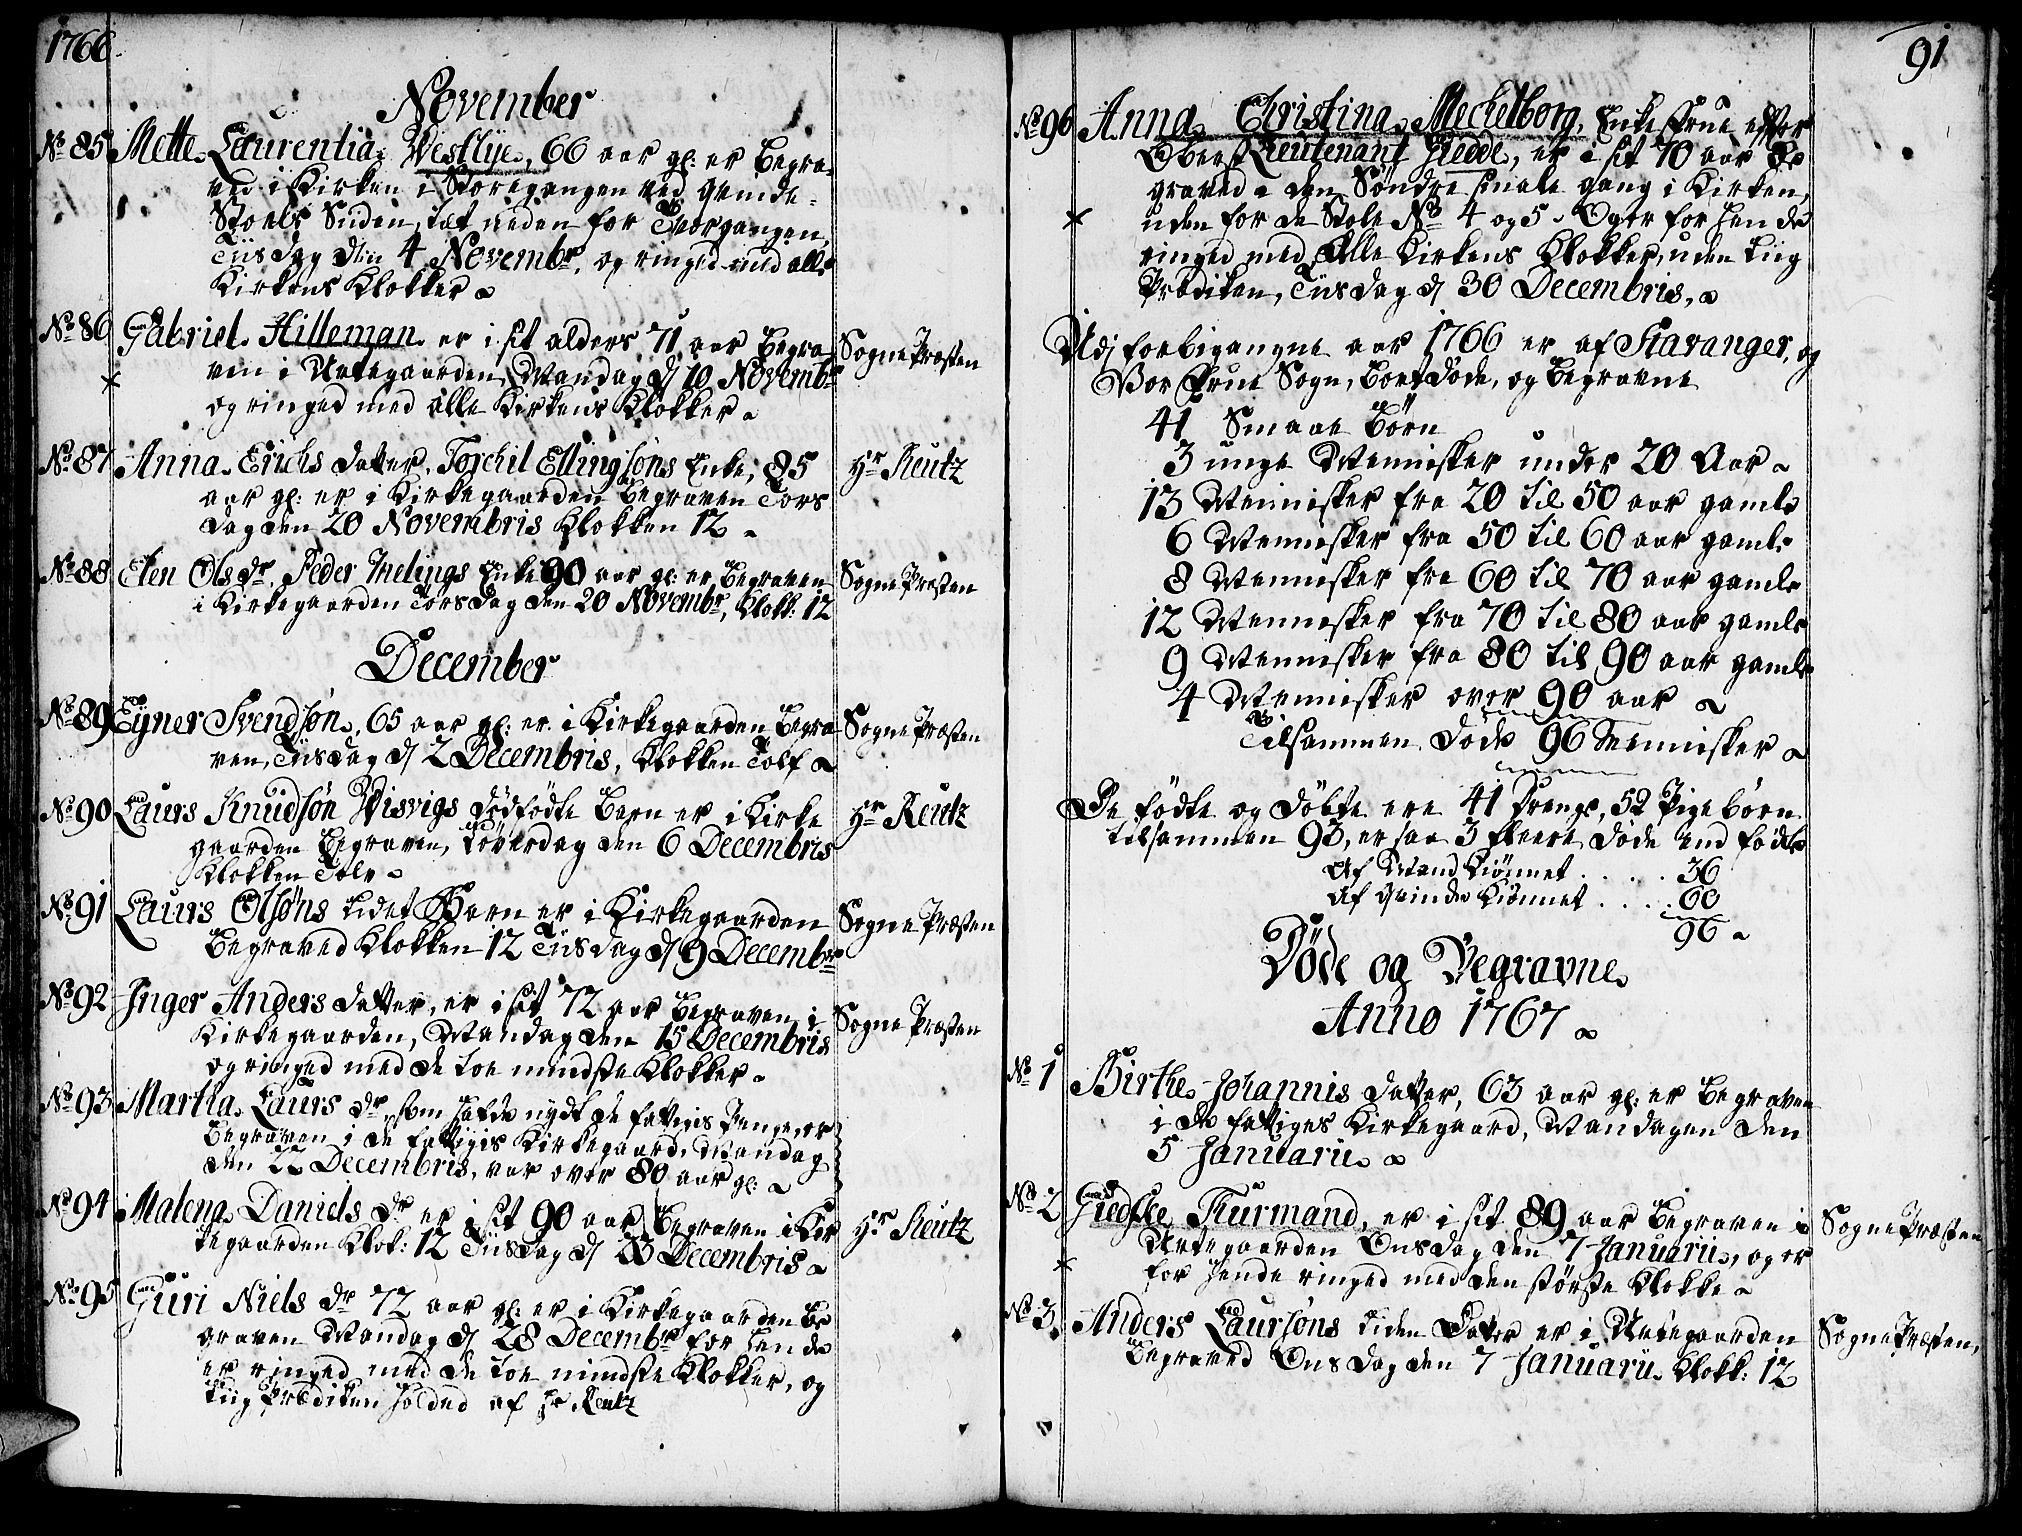 1766
November
No 85 Mette Laurentia Westlye, 66 aar gl: er begra-
ved i Kirken i Storegangen ved Qvinde-
Stoels Siden, tæt neden for Tvergangen,
Tiisdag den 4 Novembr, og ringed med alle
Kirkens Klokker
No 86 Gabriel Hilleman er i sit alders 71 aar begra-
ven i Urtegaarden, Mandag d 10 Novembr
og ringed med alle Kirkens Klokker
Sogne Præsten
No 87 Anna Erichs datter, Torchil Ellingsøns Enke, 85
aar gl: er i Kirkegaarden begraven Tors
dag den 20 Novembris Klokken 12
Hr Reutz
No 88 Elen Ols dr. Peder Melings Enke 90 aar gl: er begraven
i Kirkegaarden Torsdag den 20 Novembr, Klokk: 12
Sogne Præsten
December
No 89 Eyner Svendsøn, 65 aar gl: er i Kirkegaarden begra
ven, Tiisdag d 2 Decembris, Klokken Tolf
Sogne Præsten
No 90 Laurs Knudsøn Wisvigs dødfødte Barn er i Kirke
gaarden begraven, Løverdag den 6 Decembris
Klokken Tolv
Hr Reutz
No 91 Laurs Olsøns lidet Barn er i Kirkegaarden
begraved Klokken 12 Tiisdag d 9 Decembr
Sogne Præsten
No 92 Inger Anders datter, er i sit 72 aar begraven i
Kirkegaarden, Mandag den 15 Decembris
og ringed med de toe mindste Klokker
Sogne Præsten
No 93 Martha Laurs dr, som hafde nydt de fattigis Penge, er
begraven i de fattigis Kirkegaard, Mandag
den 22 Decembris, var over 80 aar gl:
No 94 Malena Daniels dr er i sit 90 aar begraven i Kir
kegaarden Klok: 12 Tiisdag d 23 Decembris
Hr Reutz
No 95 Guri Niels dr 72 aar gl: er i Kirkegaarden be
graven Mandag d 28 Decembr for hende
er ringed med de toe mindste Klokker, og
Liig Prædiken holded af Hr Reutz
91
No 96 Anna Christina Meckelborg, Enke Frue efter
Oberst Lieutenant Hedde, er i sit 70 aar be
graved i den Søndre smale gang i Kirken,
uden for de Stole No 4 og 5. Og er for hende
ringed med Alle Kirkens Klokker, uden Liig
Prædiken, Tiisdag d 30 Decembris,
Udj forbigangne aar 1766 er af Stavanger, og
Vor Frue Sogn, bortdøde, og begravne
41 Smaae Børn
3 unge Mennisker under 20 Aar
13 Mennisker fra 20 til 50 aar gamle
6 Mennisker fra 50 til 60 aar gamle
8 Mennisker fra 60 til 70 aar gamle
12 Mennisker fra 70 til 80 aar gamle
9 Mennisker fra 80 til 90 aar gamle
4 Mennisker over 90 aar
Tilsammen døde 96 Mennisker
De fødte og døbte ere 41 Drenge, 52 Pigebørn
tilsammen 93, er saa 3 fleere døde end fødte
Af Mand Kiønnet . . . . . 36
Af Qvinde Kiønnet . . . . . 60
96
Døde og Begravne
Anno 1767
No 1 Birthe Johannis datter, 63 aar gl: er begraven
i de fattiges Kirkegaard, Mandagen den
5 Januarii
No 2 Giedske Thurmand, er i sit 89 aar begraven i
Urtegaarden Onsdag den 7 Januarii, og er
for hende ringed med den største Klokke
Sogne Præsten
No 3 Anders Laursøns liden Dater er i Urtegaarden
begraved Onsdag den 7 Januarii Klokk: 12
Sogne Præsten,